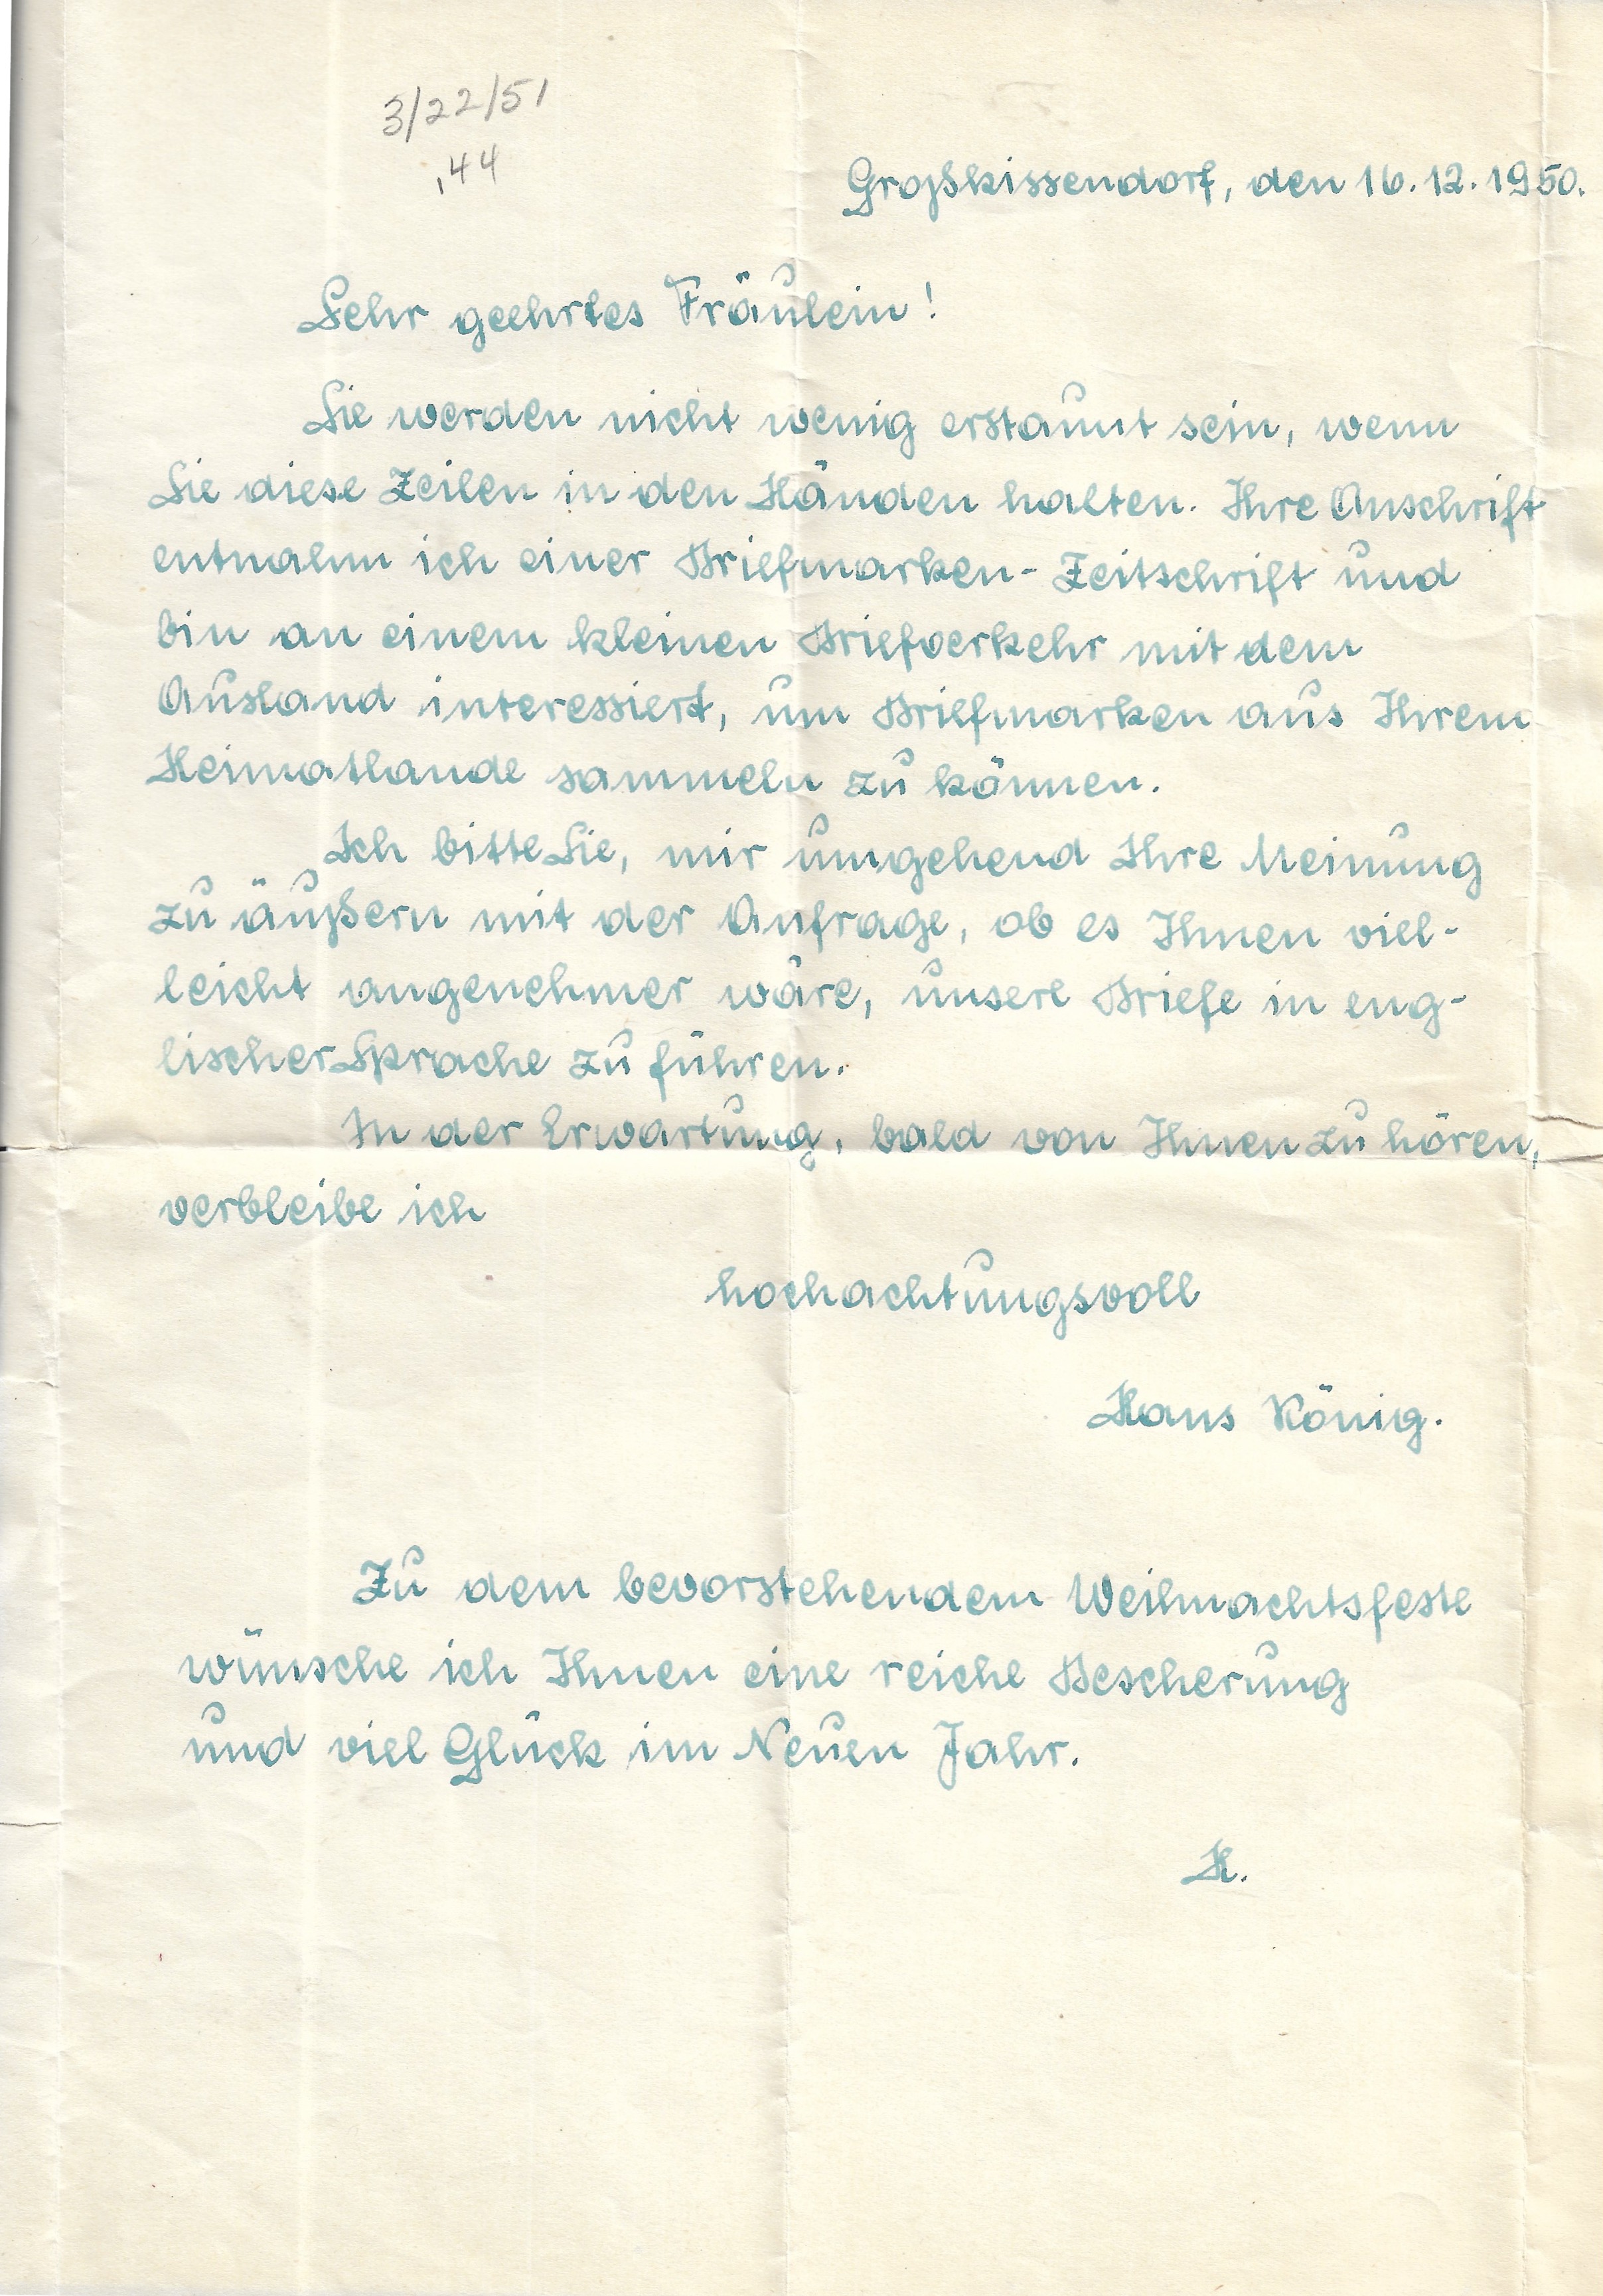 3/22/51
.44
Großkissendorf, den 16.12.1950.
Sehr geehrtes Fräulein!
Sie werden nicht wenig erstaunt sein, wenn
Sie diese Zeilen in den Händen halten. Ihre Anschrift
entnahm ich einer Briefmarken-Zeitschrift und
bin an einem kleinen Briefverkehr mit dem
Ausland interessiert, um Briefmarken aus Ihrem
Heimatlande sammeln zu können.
Ich bitte Sie, mir umgehend Ihre Meinung
zu äußern mit der Anfrage, ob es Ihnen viel-
leicht angenehmer wäre, unsere Briefe in eng-
lischer Sprache zu führen.
In der Erwartung, bald von Ihnen zu hören,
verbleibe ich
hochachtungsvoll
Hans König.
Zu dem bevorstehendem Weihnachtsfeste
wünsche ich Ihnen eine reiche Bescherung
und viel Glück im Neuen Jahr.
H.